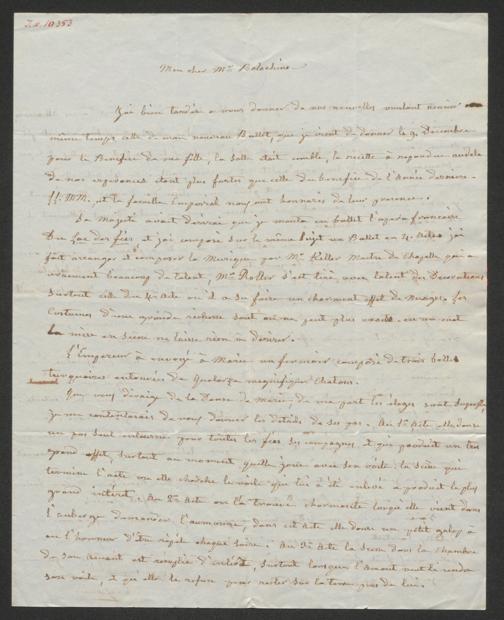 Mon cher Mr Balachine
J'ai bien tardé a vous donner de nos nouvelles voulant réunir en
même temps celle de mon nouveau Ballet, que je vient de donner le 9. décembre
pour le Bénéfice de ma fille, la salle était comble, la recette à repondue audela
de nos espérances étant plus fortes que celle du bénéfice de l'Année dernière.
et la famille Imperial nous ont honnorés de leur presence.
Sa Majesté avait désirai que je monta en ballet l'opéra français
Du Lac des fées et j'ai composé sur le même sujet un Ballet en 4. Actes j'ai
fait arranger et composer la Musique par Mr. Maitre de Chapelle qui a
vraiment beaucoup de talent, Mr. Roller s'est tiré avec talent des Décorations
surtout celle du 4e Acte ou il a su faire un charmant effet de Nuages. les
Costumes d'une grande richesse sont on ne peut plus exacts. en un mot
la mise en Scene ne laisse rien a desirer.
L'Empereur à envoyé à Marie un fermoir composé de trois belles
turquoises entourées de Quatorze magnifiques chatons.
Que vous dirai-je de la Danse de Marie, de ma part les éloges sont superflus
je me contenterais de vous donner les details de ses pas. Au 1er Acte elle danse
un pas seul entourée pour toutes les fées ses compagnes, et qui produit un très
grand effet, surtout au moment quelle joue avec son voile. la scène qui
termine l'acte ou elle cherche le voile que lui à été enlevé a produit le plus
grand intéret. Au 2e Acte on l'a trouvée charmante lorsqu'elle vient dans
l'auberge demander l'aumonne, dans cet Acte elle danse un petit galop à
eu l'honneur d'être répété chaque soirée. Au 3e Acte la Scene dans la chambre
de son Amant est remplie d'intéret, surtout lorsque l'Amant veut lui rendre
son voile, et que elle le refuse pour rester sur la terre près de lui.